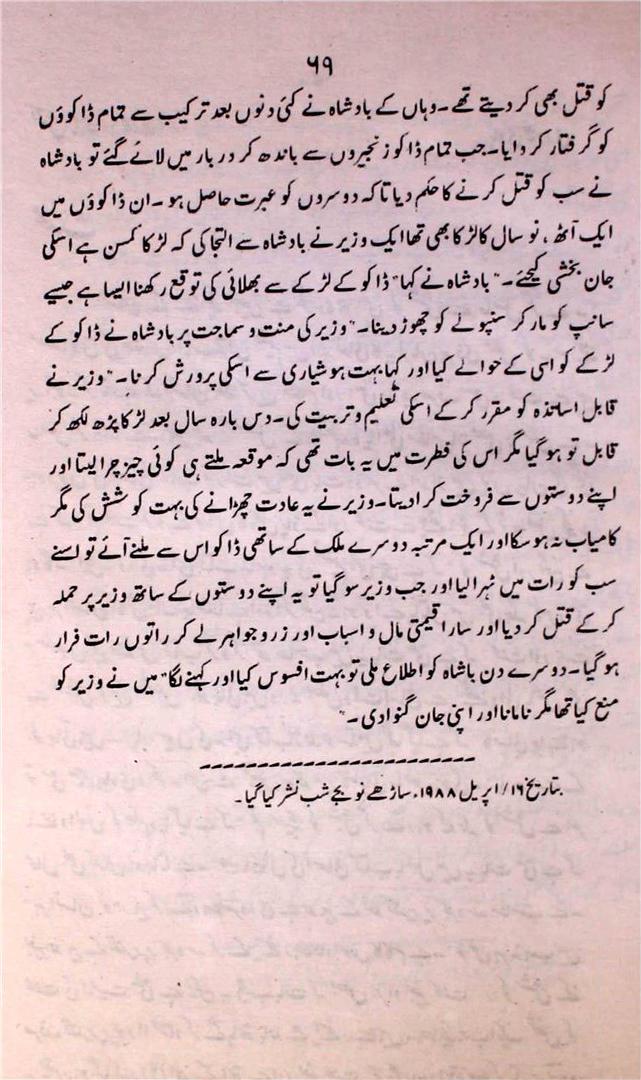 ۶۹
کو قتل بھی کر دیتے تھے۔ وہاں کے بادشاہ نے کئی دنوں بعد ترکیب سے تمام ڈاکوؤں
کو گرفتار کر دایا۔ جب تمام ڈاکو زنجیروں سے باندھ کر دربار میں لائے گئے تو بادشاہ
نے سب کو قتل کرنے کا حکم دیا تاکہ دوسروں کو عبرت حاصل ہو۔ ان ڈاکوؤں میں
ایک آٹھ، نو سال کا لڑکا بھی تھا ایک وزیر نے بادشاہ سے التجا کی کہ لڑکا کمسن ہے اسکی
جان بخشی کیجئے۔" بادشاہ نے کہا" ڈاکو کے لڑکے سے بھلائی کی توقع رکھنا ایسا ہے جیسے
سانپ کو مار کر سنپولے کو چھوڑ دینا۔" وزیر کی منت و سماجت پر بادشاہ نے ڈاکو کے
لڑکے کو اسی کے حوالے کیا اور کہا بہت ہوشیاری سے اسکی پرورش کرنا۔" وزیر نے
قابل اساتذہ کو مقرر کر کے اسکی تعلیم و تربیت کی۔ دس بارہ سال بعد لڑکا پڑھ لکھ کر
قابل تو ہو گیا مگر اس کی فطرت میں یہ بات تھی کہ موقعہ ملتے ہی کوئی چیز چرا لیتا اور
اپنے دوستوں سے فروخت کرا دیتا۔ وزیر نے یہ عادت چھڑانے کی بہت کوشش کی مگر
کامیاب نہ ہو سکا اور ایک مرتبہ دوسرے ملک کے ساتھی ڈاکو اس سے ملنے آئے تو اسنے
سب کو رات میں ٹہرا لیا اور جب وزیر سو گیا تو یہ اپنے دوستوں کے ساتھ وزیر پر حملہ
کر کے قتل کر دیا اور سارا قیمتی مال و اسباب اور زر و جواہر لے کر راتوں رات فرار
ہو گیا۔ دوسرے دن باشاہ کو اطلاع ملی تو بہت افسوس کیا اور کہنے لگا" میں نے وزیر کو
منع کیا تھا مگر نا مانا اور اپنی جان گنوا دی۔"
بتاریخ ۱۶/ اپریل ۱۹۸۸ء ساڑھے نو بجے شب نشر کیا گیا۔